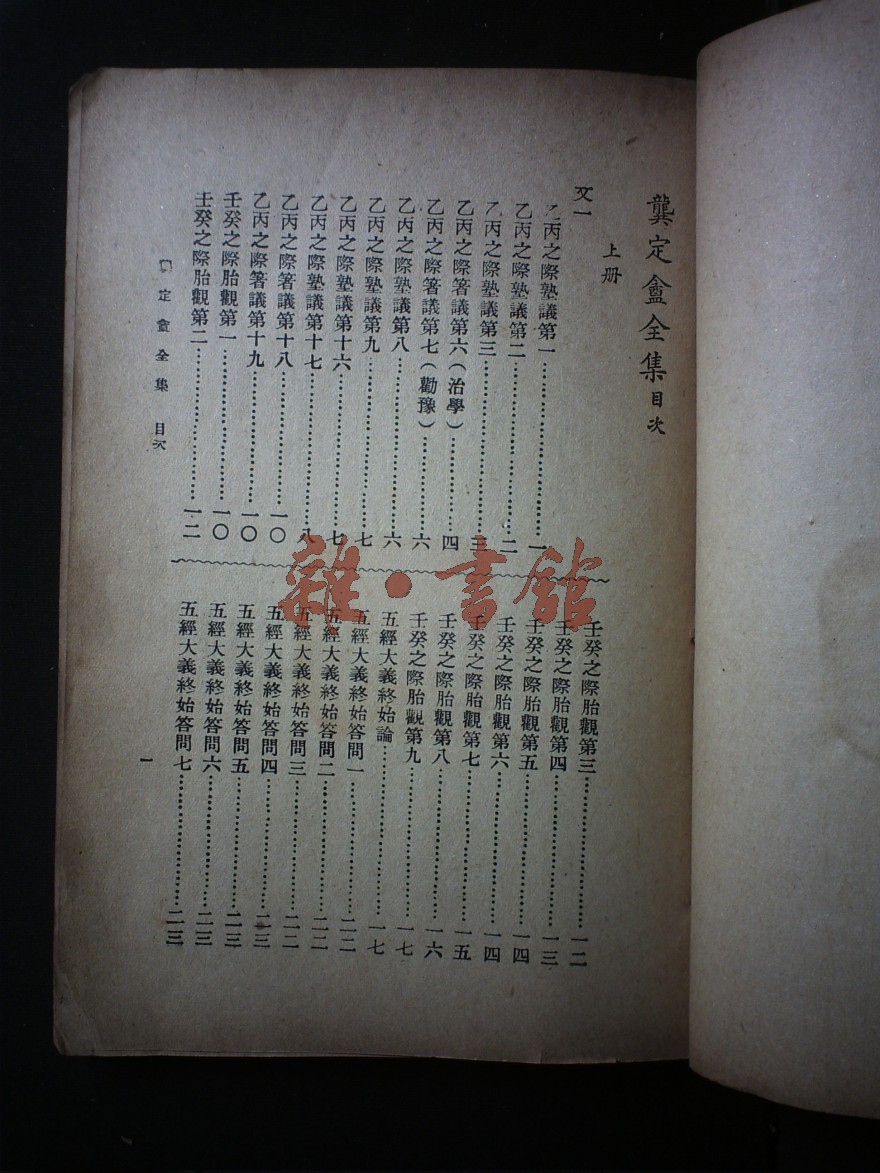 龔定盦全集目次
上册
文一
乙丙之際塾議第一……一
乙丙之際塾議第二……二
乙丙之際塾議第三……三
乙丙之際箸議第六(治學)……四
乙丙之際箸議第七(勸豫)……六
乙丙之際箸議第八……六
乙丙之際塾議第九……七
乙丙之際塾議第十六……七
乙丙之際塾議第十七……八
乙丙之際箸議第十八……一〇
乙丙之際箸議第十九……一〇
壬癸之際胎觀第一……一〇
壬癸之際胎觀第二……一二
壬癸之際胎觀第三……一二
壬癸之際胎觀第四……一三
壬癸之際胎觀第五……一四
壬癸之際胎觀第六……一四
壬癸之際胎觀第七……一五
壬癸之際胎觀第八……一六
壬癸之際胎觀第九……一七
五經大義終始論……一七
五經大義終始答問一……二二
五經大義終始答問二……二二
五經大義終始答問三……二二
五經大義終始答問四……二三
五經大義終始答問五……二三
五經大義終始答問六……二三
五經大義終始答問七……二三
龔定盦全集 目次
一
雜·書館